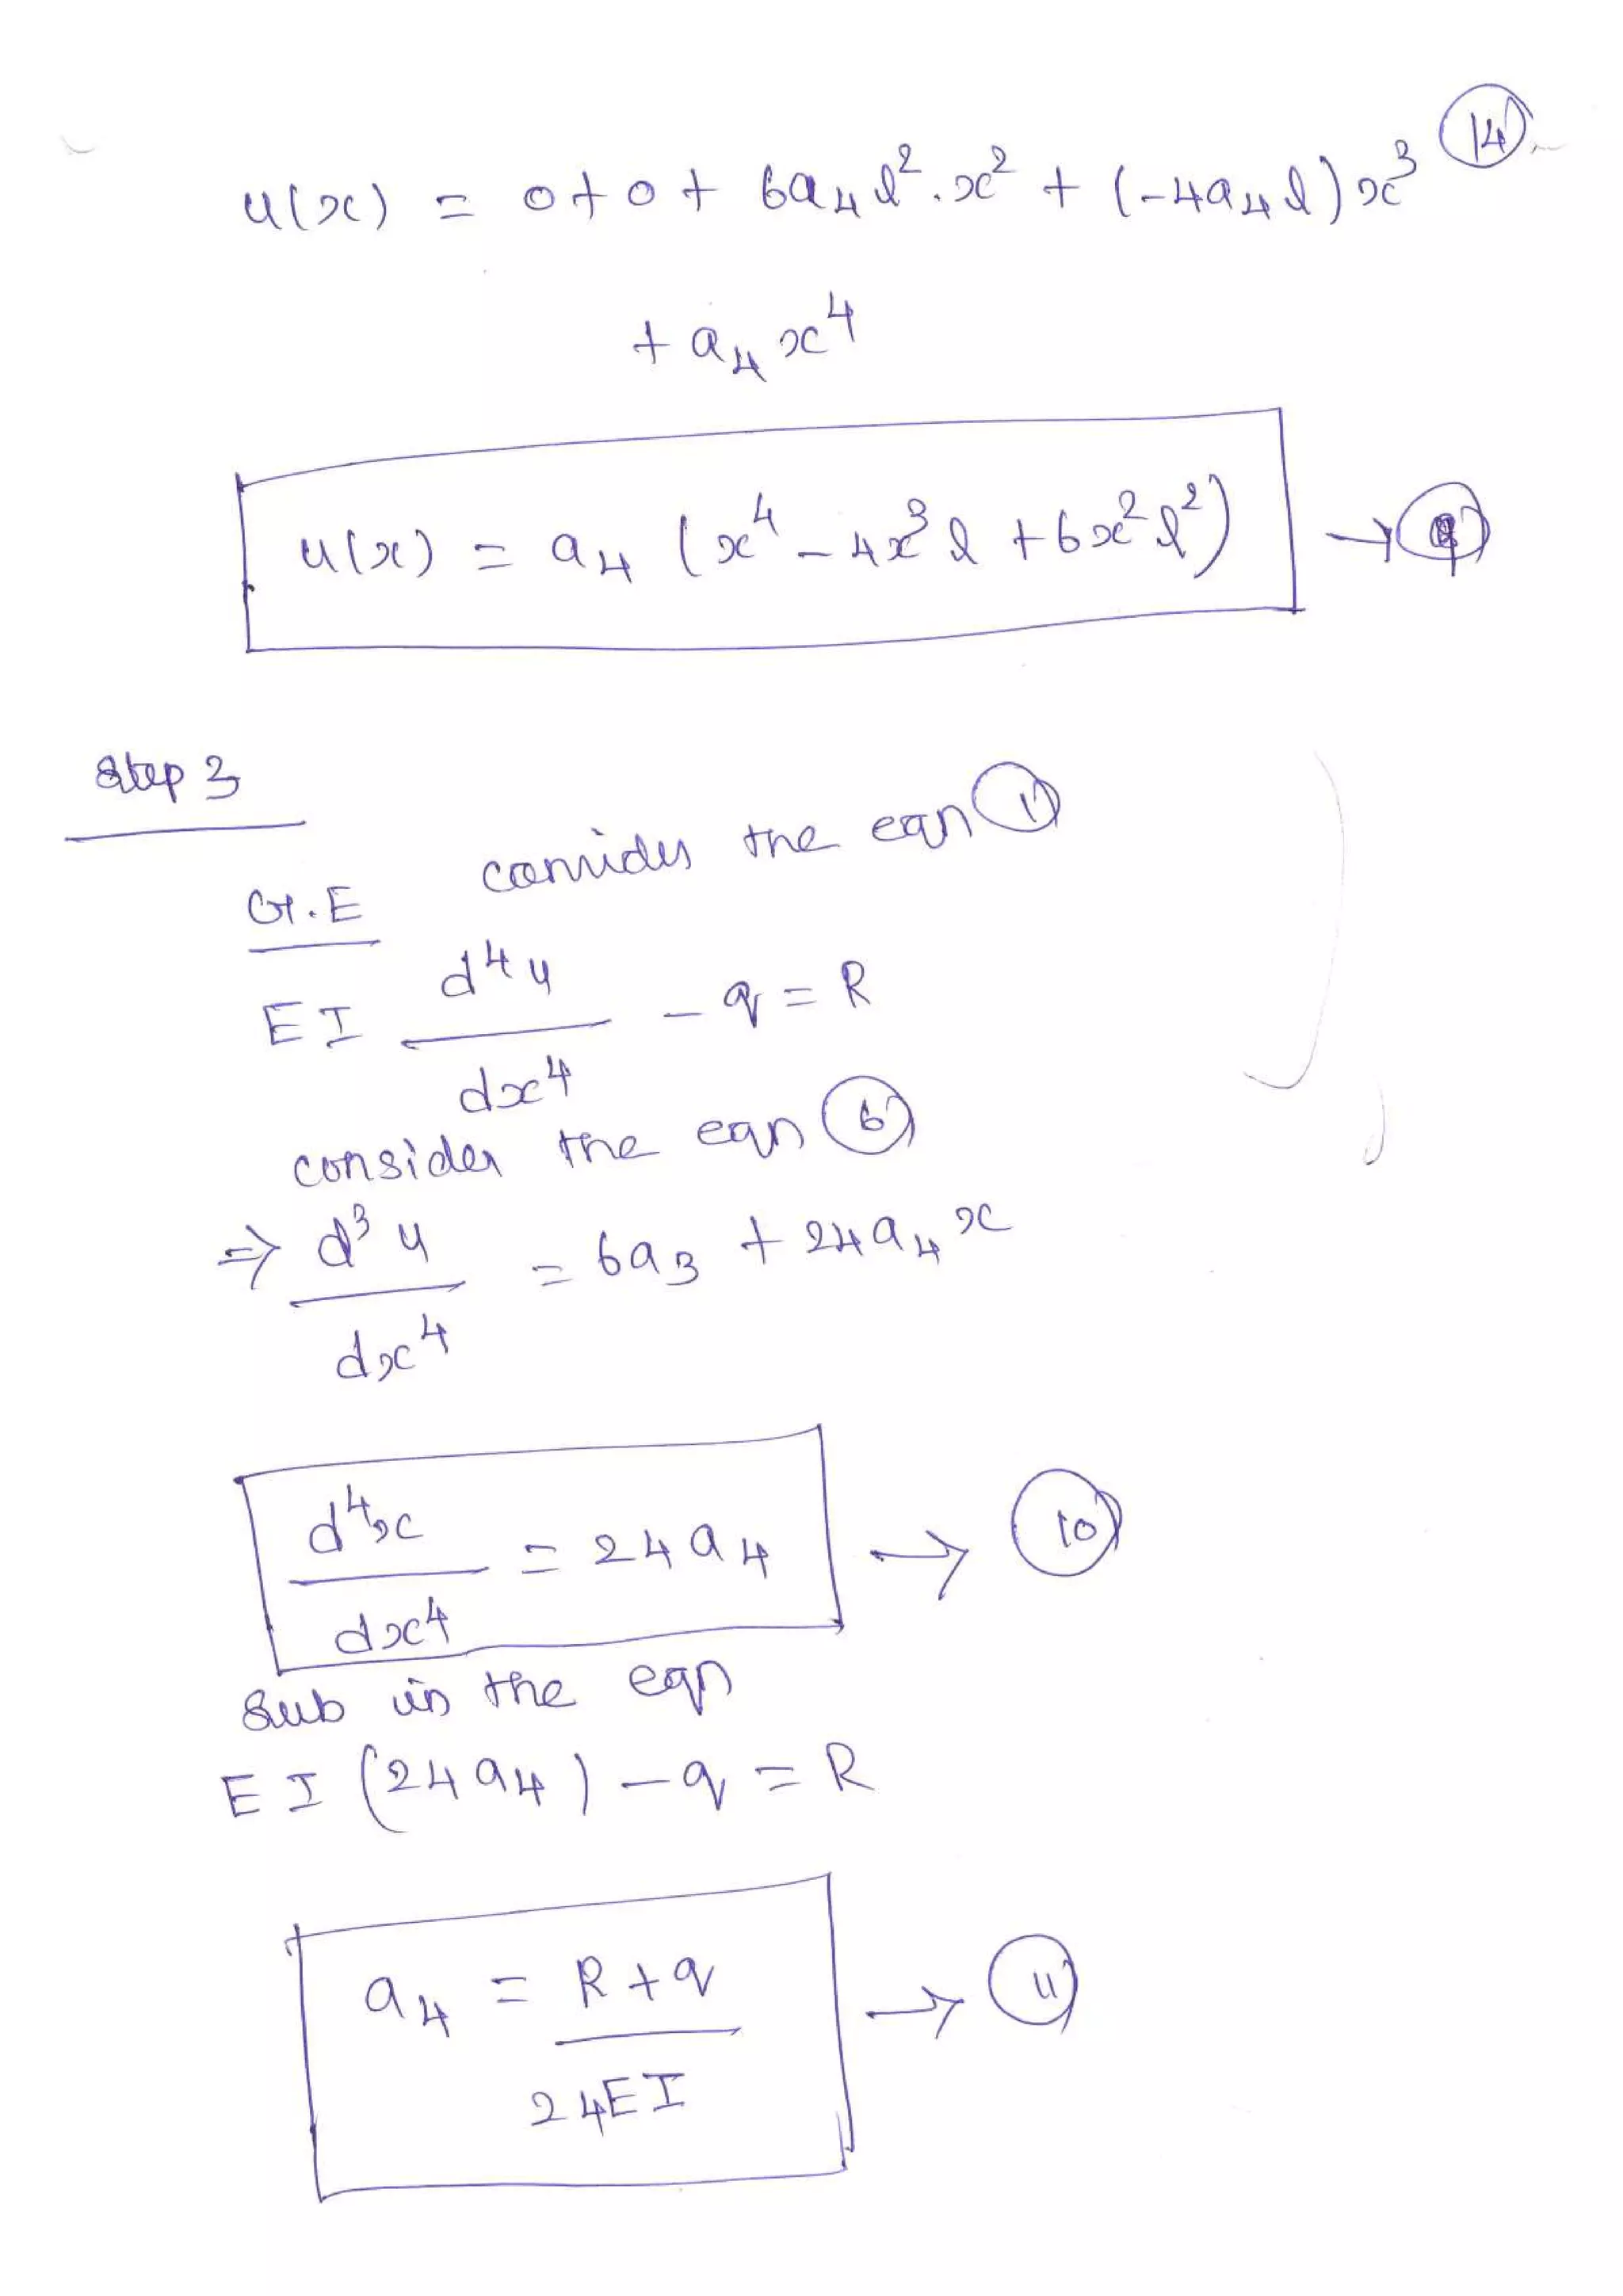 14
u(x) = 0 + 0 + 6a₄l².x² + (-4a₄l)x³
+ a₄x⁴
u(x) = a₄ (x⁴ - 4x³l + 6x²l²) → 9
Step 3
consider the eqn 1
G.E
EI d⁴u/dx⁴ - q = R
consider the eqn 6
⇒ d³u/dx⁴ = 6a₃ + 24a₄x
d⁴x/dx⁴ = 24a₄ → 10
Sub in the eqn
EI (24a₄) - q = R
a₄ = R+q/24EI → 11